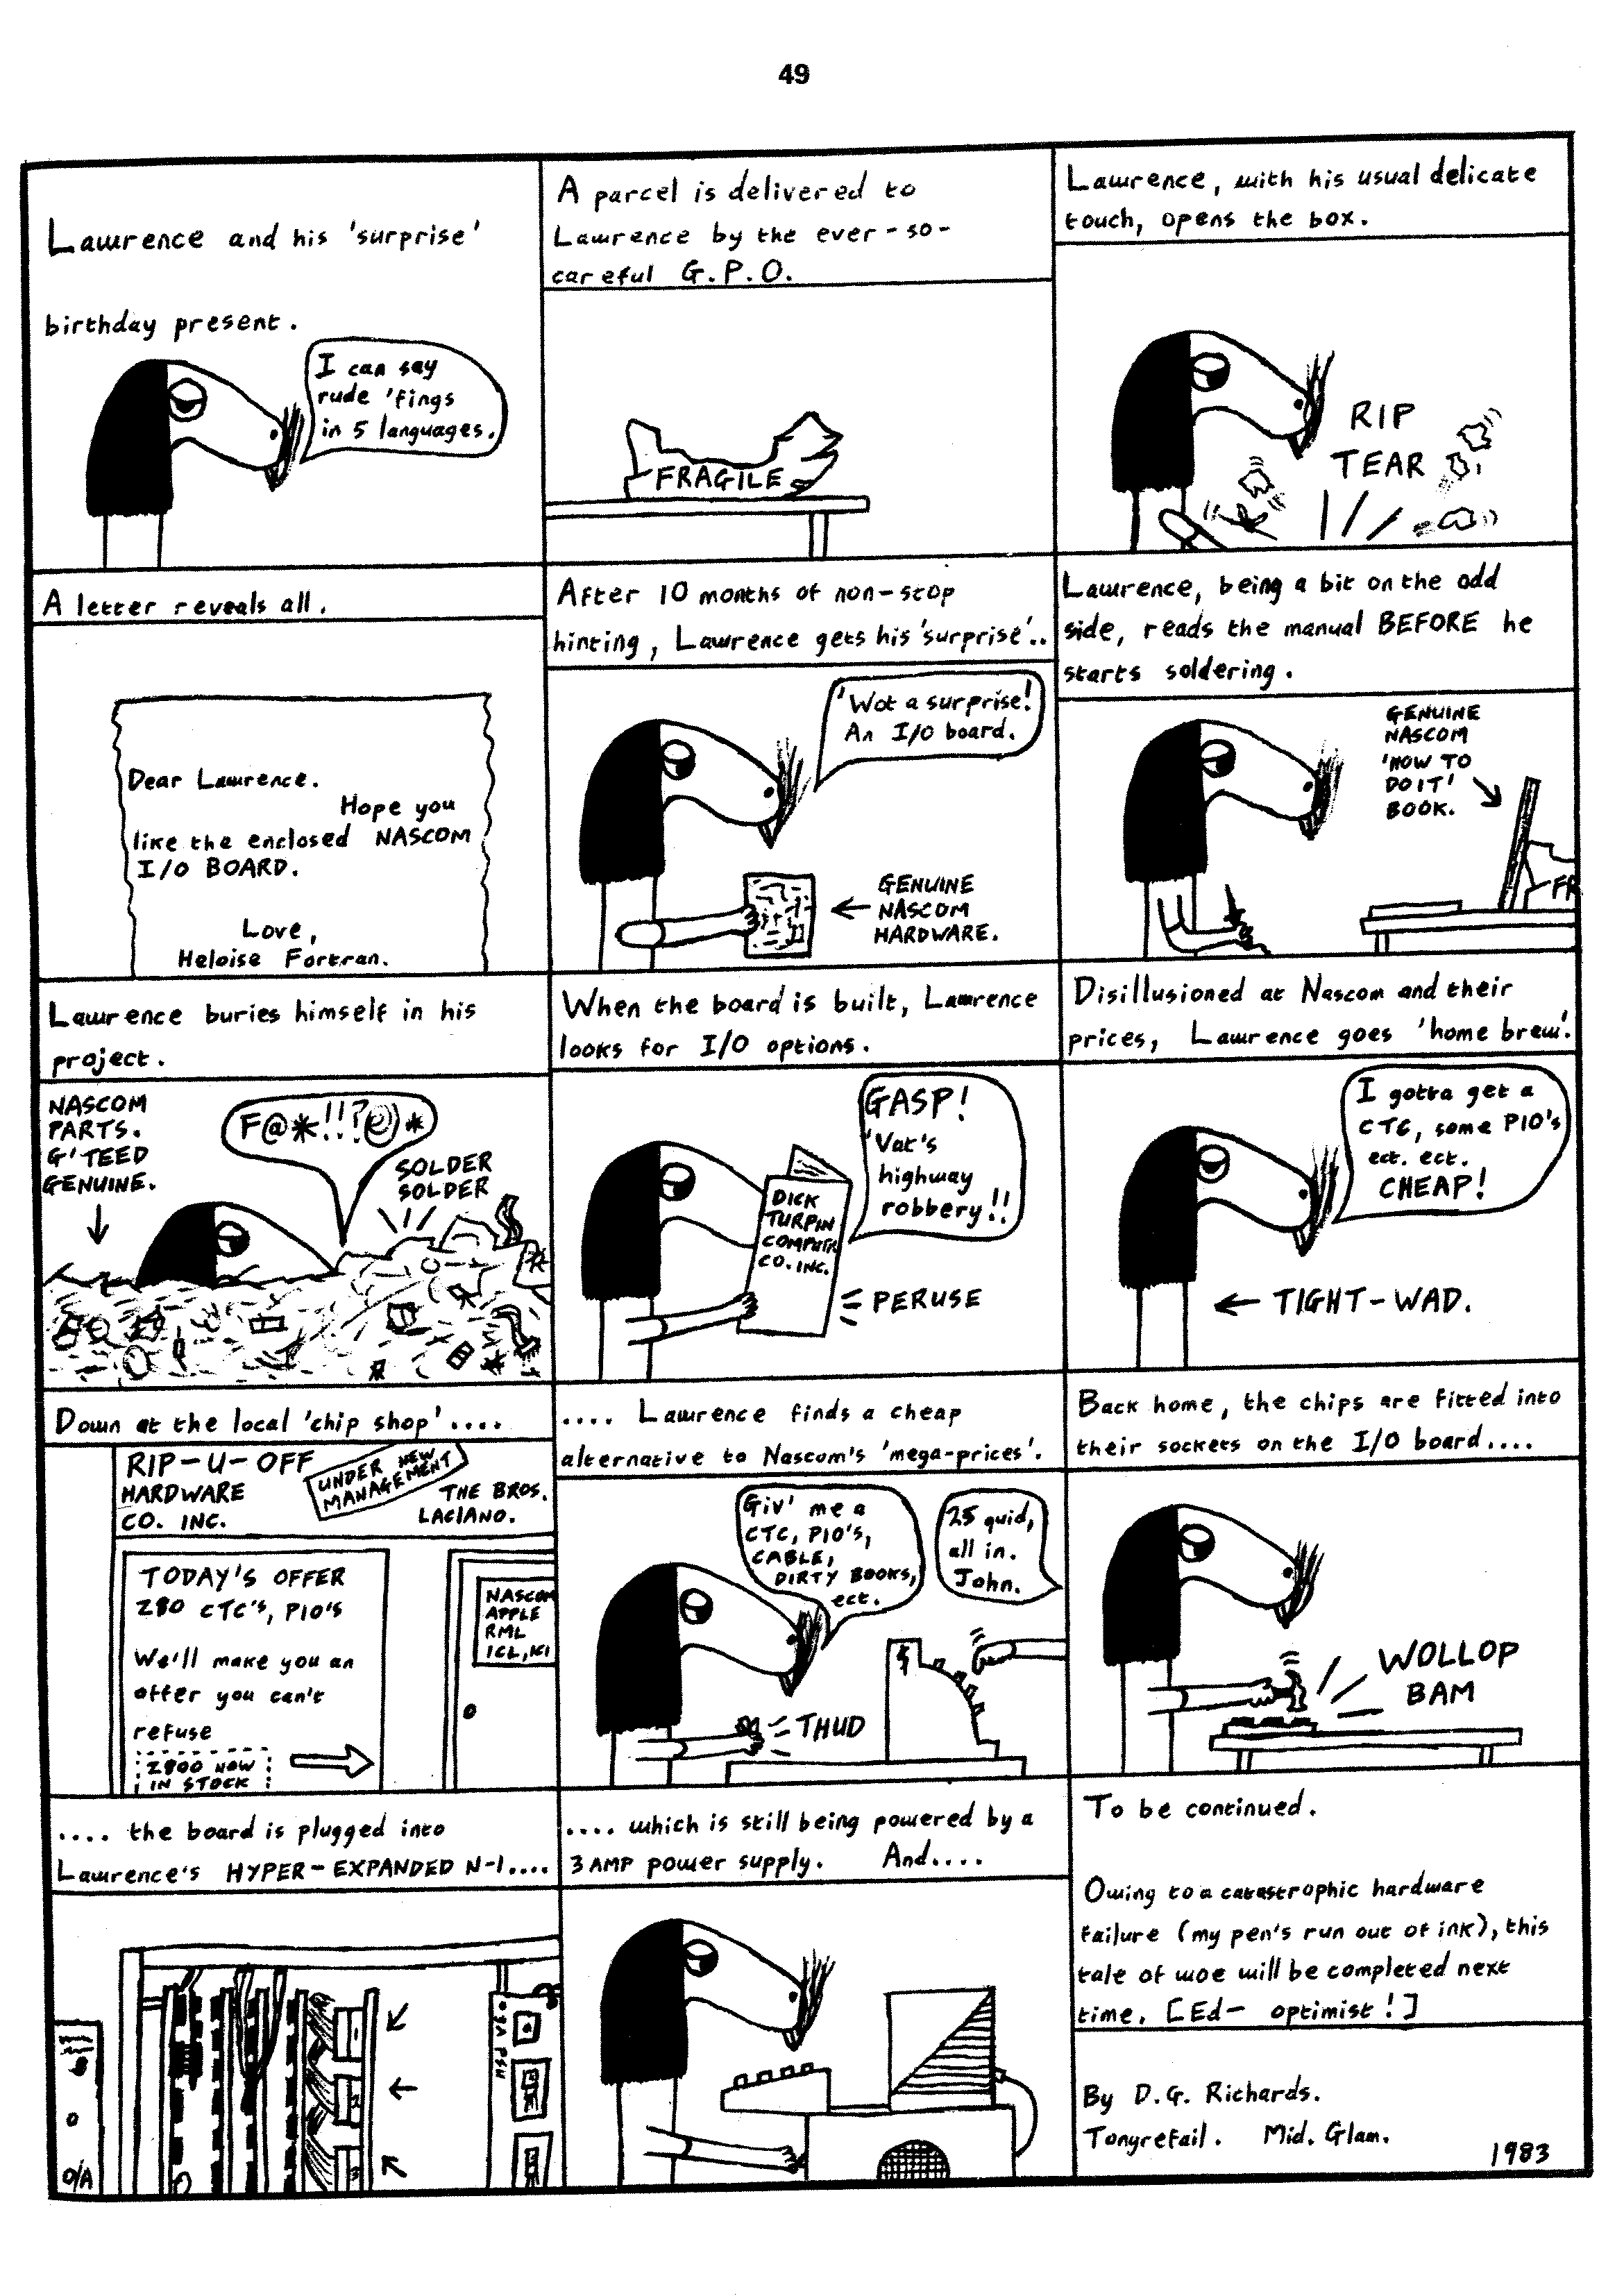 49
Lawrence and his 'surprise'
birthday present.
I can say
rude 'fings
in 5 languages.
A parcel is delivered to
Lawrence by the ever-so-
careful G.P.O.
FRAGILE
Lawrence, with his usual delicate
touch, opens the box.
RIP
TEAR
A letter reveals all.
Dear Lawrence.
Hope you
like the enclosed NASCOM
I/O BOARD.
Love,
Heloise Fortran.
After 10 months of non-stop
hinting, Lawrence gets his 'surprise'..
'Wot a surprise!
An I/O board.
GENUINE
NASCOM
HARDWARE.
Lawrence, being a bit on the odd
side, reads the manual BEFORE he
starts soldering.
GENUINE
NASCOM
'HOW TO
DO IT'
BOOK.
FR
Lawrence buries himself in his
project.
NASCOM
PARTS.
G'TEED
GENUINE.
F@*!!?@*
SOLDER
SOLDER
When the board is built, Lawrence
looks for I/O options.
GASP!
'Vat's
highway
robbery!!
DICK
TURPIN
COMPUTR
CO. INC.
PERUSE
Disillusioned at Nascom and their
prices, Lawrence goes 'home brew'.
I gotta get a
CTC, some PIO's
ect. ect.
CHEAP!
TIGHT-WAD.
Down at the local 'chip shop'....
RIP-U-OFF
HARDWARE
CO. INC.
UNDER NEW
MANAGEMENT
THE BROS.
LACIANO.
TODAY'S OFFER
Z80 CTC'S, PIO'S
We'll make you an
offer you can't
refuse
Z800 NOW
IN STOCK
NASCOM
APPLE
RML
ICL, ICI
.... Lawrence finds a cheap
alternative to Nascom's 'mega-prices'.
Giv' me a
CTC, PIO'S,
CABLE,
DIRTY BOOKS,
ect.
25 quid,
all in.
John.
£
THUD
Back home, the chips are fitted into
their sockets on the I/O board....
WOLLOP
BAM
.... the board is plugged into
Lawrence's HYPER-EXPANDED N-1....
O/A
1
2
3
9A PSU
.... which is still being powered by a
3 AMP power supply. And....
To be continued.
Owing to a catastrophic hardware
failure (my pen's run out of ink), this
tale of woe will be completed next
time. [Ed- optimist!]
By D.G. Richards.
Tonyrefail. Mid. Glam.
1983